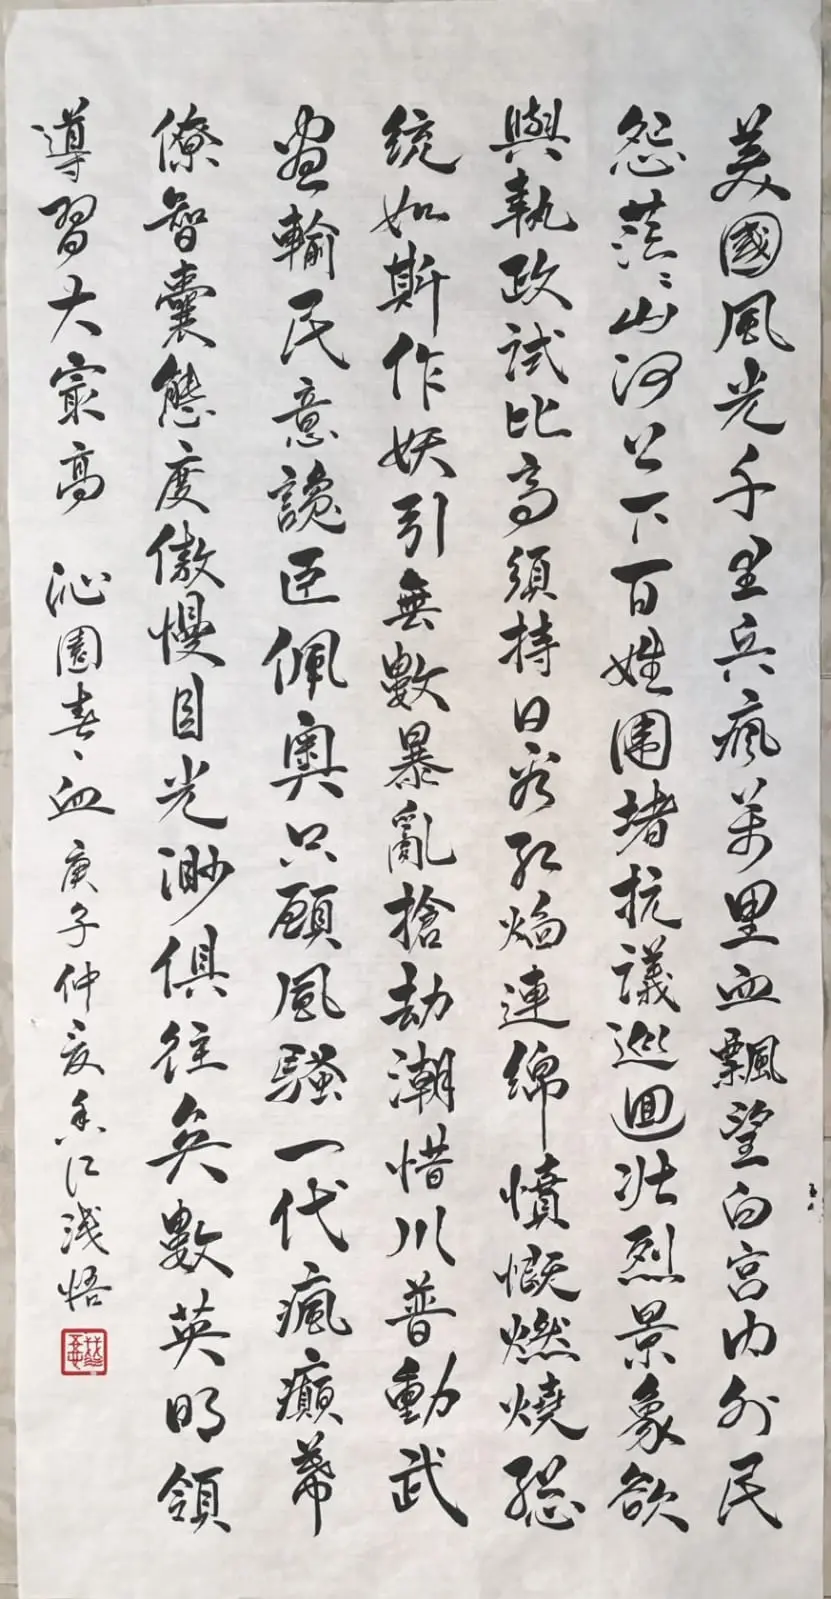 美國風光千里兵瘋萬里血飄望白宮内外民
怨茫茫山河上下百姓围堵抗議巡迴壯烈景象欲
與執政試比高須持日看紅焰連綿憤慨燃燒總
統如斯作妖引無數暴亂搶劫潮惜川普動武
盡輸民意讒臣佩奧只顧風騷一代瘋癲幕
僚智囊態度傲慢目光渺俱往矣數英明領
導習大最高 沁園春、血 庚子仲夏香江淺悟